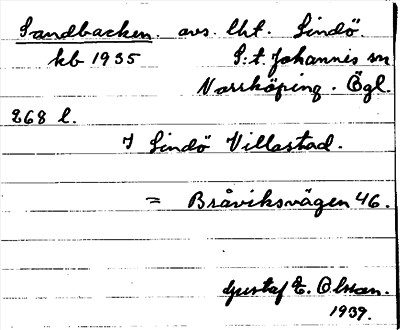 Sandbacken. avs. Cht. Lindö.
kb 1935 S:t. Johannis sn
Norrköping. Ögl.
268 l.
I Lindö Villastad.
= Bråviksvägen 46.
Gustaf E. Olsson.
1939.